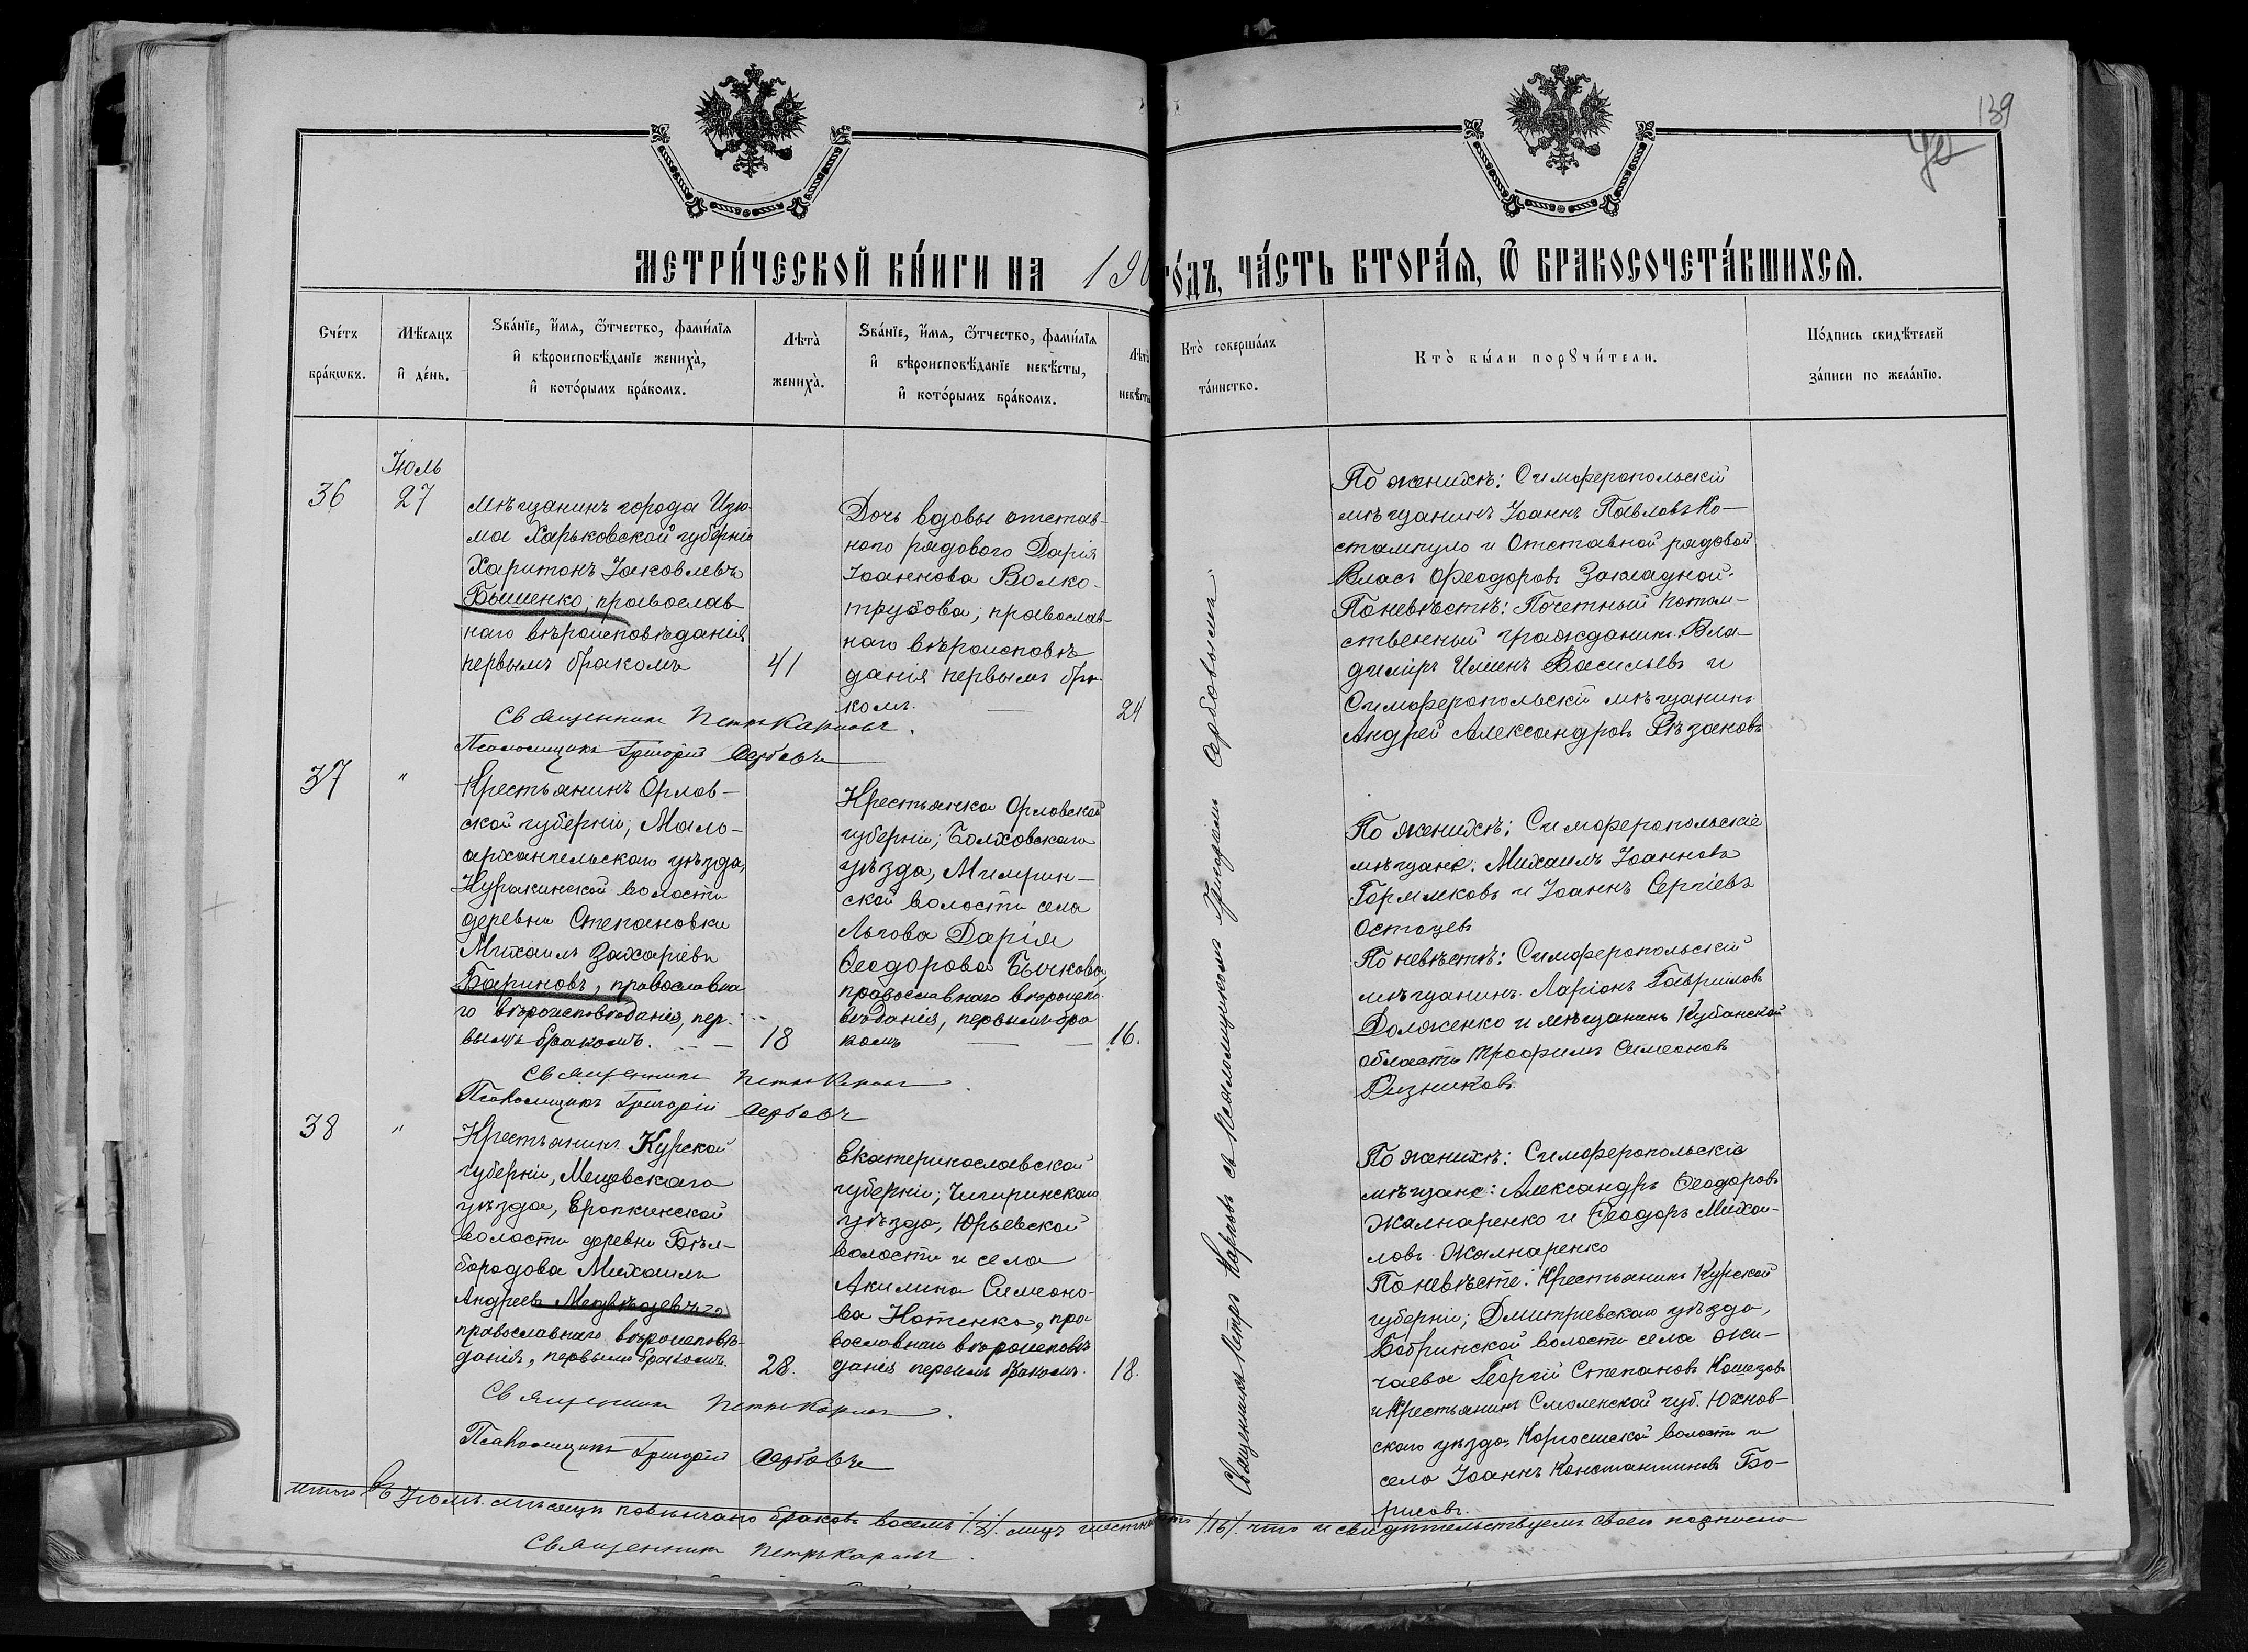 139
МЕТРИ́ЧЕСКОЙ КНИ́ГИ НА 190
ГО́ДЪ, ЧА́СТЬ ВТОРА́Я, Ѡ БРАКОСОЧЕТА́ВШИХСЯ.
Сче́тъ бра́кѡвъ.
Мѣ́сяцъ и҆ де́нь.
Ѕва́нїе, и҆́мя, ѻ҆́тчество, фами́лїя
и҆ вѣроисповѣ́данїе жениха̀,
и҆ кото́рымъ бра́комъ.
Лѣта̀ жениха̀.
Ѕва́нїе, и҆́мя, ѻ҆́тчество, фами́лїя
и҆ вѣроисповѣ́данїе невѣ́сты,
и҆ кото́рымъ бра́комъ.
Лѣта̀ невѣ́сты
Кто̀ соверша́лъ
та́инство.
Кто̀ бы́ли порꙋчи́тели.
По́дпись свидѣ́телей
за́писи по жела́нїю.
36
Июль
27
Мѣщанинъ города Изю-
ма Харьковской губерніи
Харитонъ Іаковлевъ
Бышенко, православ-
наго вѣроисповѣданія
первымъ бракомъ
41
Дочь вдовы отстав-
ного рядового Дарія
Іоаннова Волко-
трубова, православ-
наго вѣроисповѣ-
данія первымъ бра-
комъ.
24
По женихѣ: Симферопольскій
мѣщанинъ Іоаннъ Павловъ Ко-
стампуло и Отставной рядовой
Власъ Ѳеодоровъ Закладной.
По невѣстѣ: Почетный потом-
ственный гражданинъ Вла-
димиръ Илиинъ Васильевъ и
Симферопольскій мѣщанинъ
Андрей Александровъ Рѣзановъ
Священникъ Петръ Карповъ.
Псаломщикъ Григорій Сербовъ
37
"
Крестьянинъ Орлов-
ской губерніи, Мало-
архангельскаго уѣзда,
Куракинской волости
деревни Степановки
Михаилъ Захаріевъ
Бариновъ, православна-
го вѣроисповѣданія, пер-
вымъ бракомъ.
18
Крестьянка Орловской
губерніи, Болховскаго
уѣзда, Мимрин-
ской волости села
Льгова Дарія
Ѳеодорова Бычкова,
православнаго вѣроиспо-
вѣданія, первымъ бра-
комъ
16.
По женихѣ: Симферопольскіе
мѣщане: Михаилъ Іоанновъ
Гормлковъ и Іоаннъ Сергіевъ
Остоцев
По невѣстѣ: Симферопольскій
мѣщанинъ Ларіонъ Гавриловъ
Долженко и мѣщанинъ Кубанской
области Трофимъ Симеоновъ
Ризниковъ.
Священникъ Петръ Карповъ.
Псаломщикъ Григорій Сербовъ
38
"
Крестьянинъ Курской
губерніи, Мещевскаго
уѣзда, Еропкинской
волости деревни Бѣл-
бородова Михаилъ
Андреевъ Медвѣдевъ
православнаго вѣроисповѣ-
данія, первымъ бракомъ.
28.
Екатеринославской
губерніи, Чигиринскаго
уѣзда, Юрьевской
волости и села
Акилина Симеоно-
ва Нотенко, пра-
вославнаго вѣроисповѣ-
данія первымъ бракомъ.
18.
По женихѣ: Симферопольскіе
мѣщане: Александръ Ѳеодоровъ
Жалнаренко и Ѳеодоръ Михаи-
ловъ Жалнаренко
По невѣсте: Крестьянинъ Курской
губерніи, Дмитріевскаго уѣзда,
Бобринской волости села Жи-
гаева Георгій Степановъ Кошезовъ
и Крестьянинъ Смоленской губ. Юхнов-
скаго уѣзда, волости и
села Іоаннъ Константиновъ Бо-
рисовъ.
Священникъ Петръ Карповъ.
Псаломщикъ Григорій Сербовъ
Священникъ Петръ Карповъ съ Псаломщикомъ Григоріемъ Сербовымъ.
Итого въ Іюлѣ мѣсяцѣ повѣнчано браковъ восемь /8/. лицъ шестнадцать /16/. что и свидѣтельствуемъ своею подписью
Священникъ Петръ Карповъ.